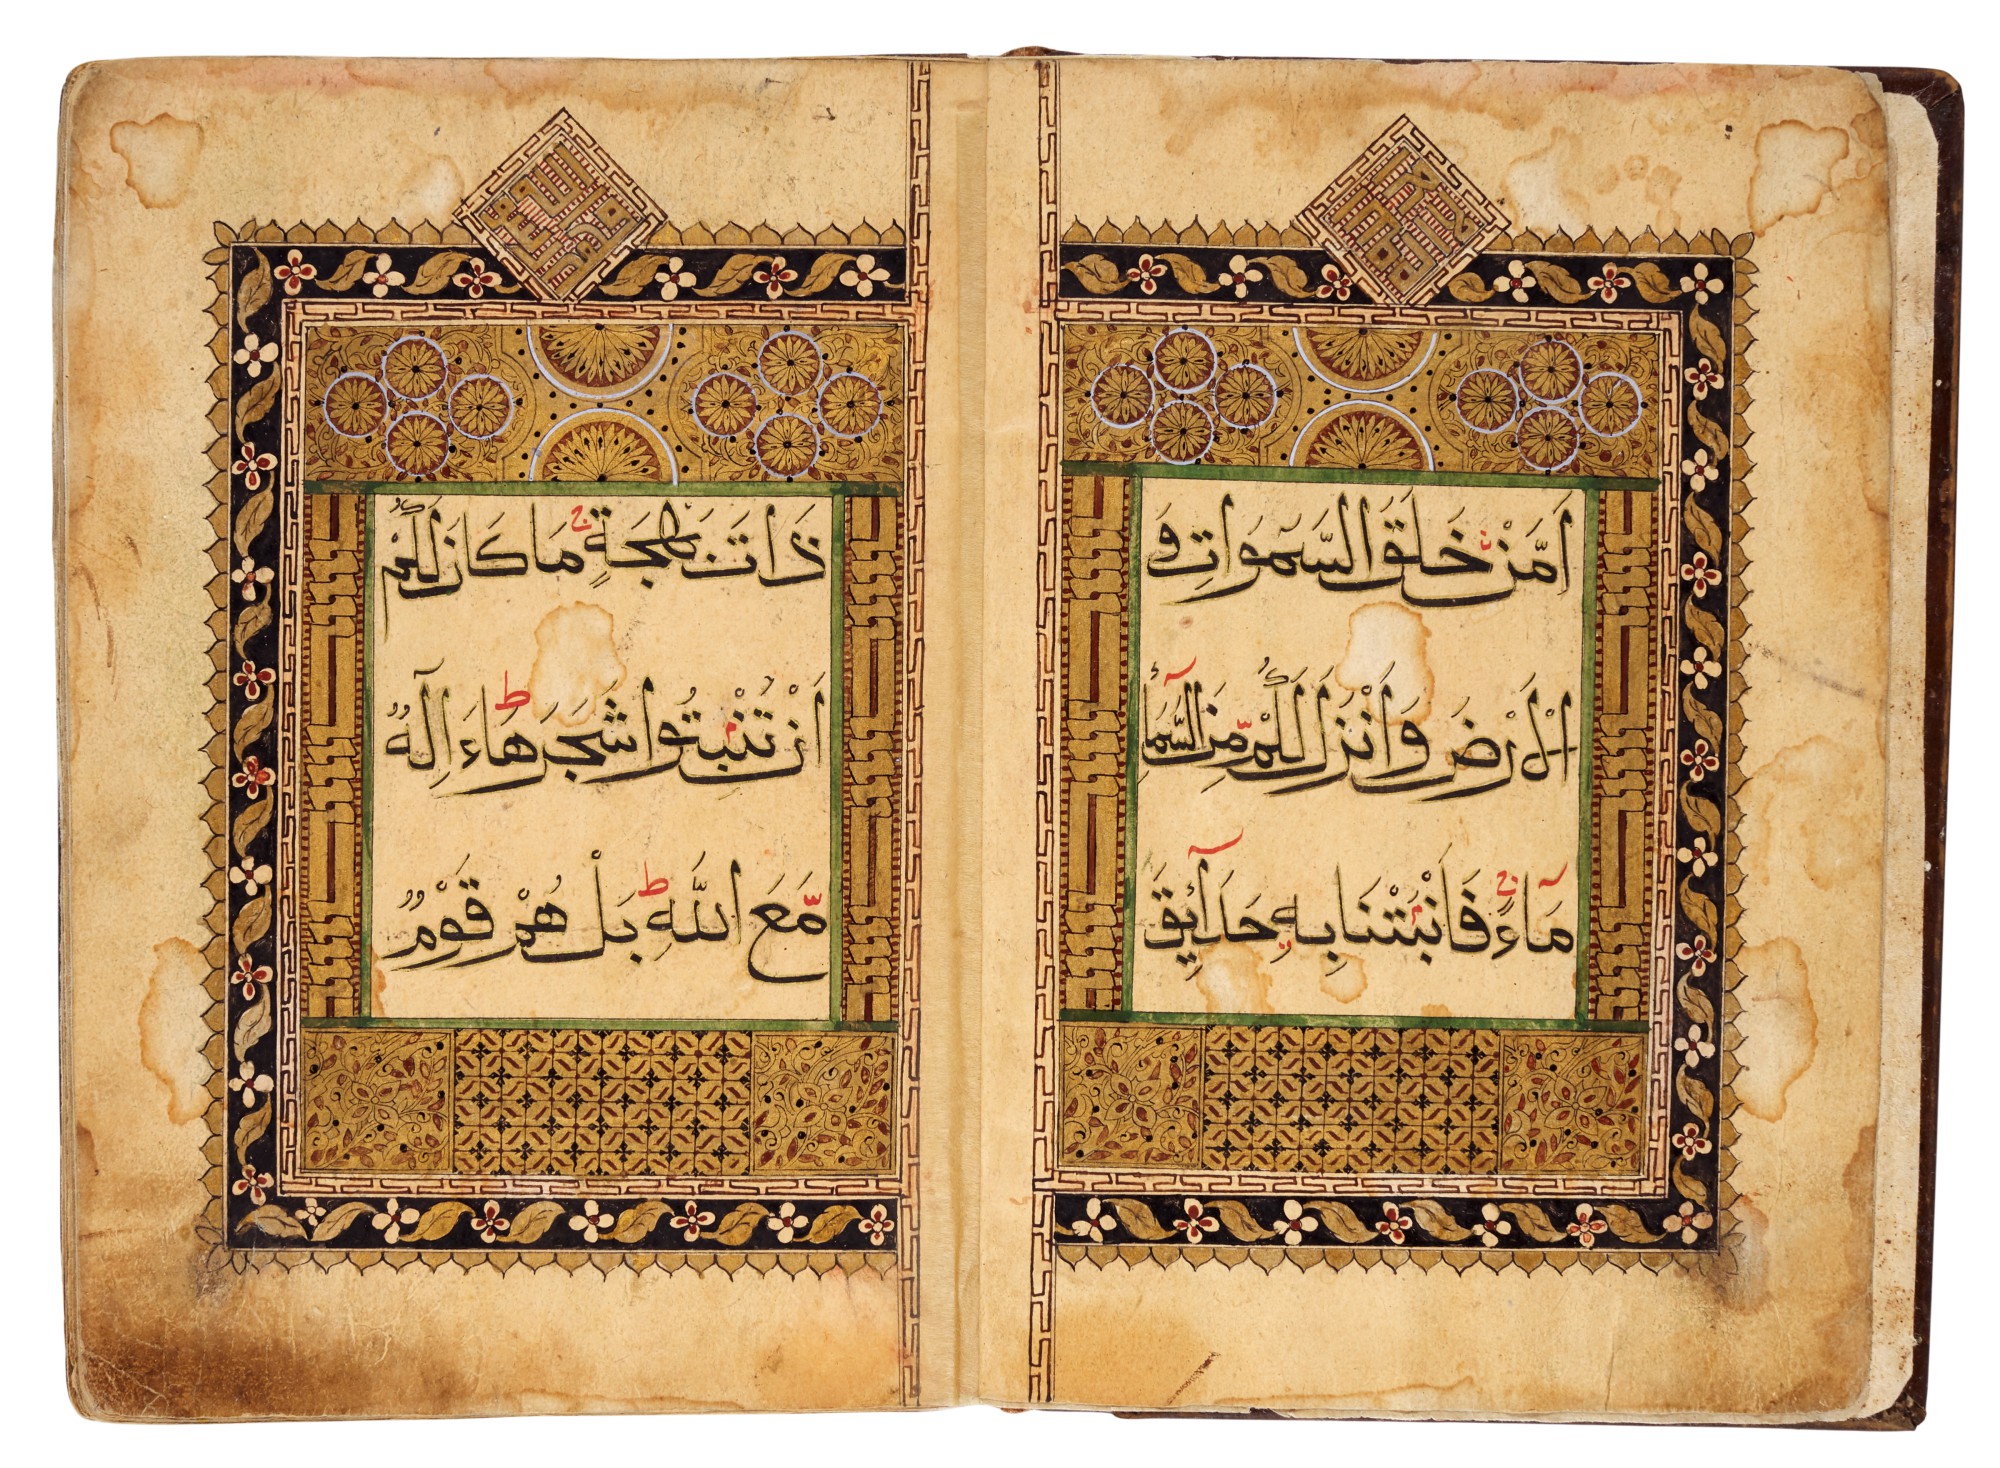 اَمَّنْ خَلَقَ السَّمٰوَاتِ وَ
الْاَرْضَ وَاَنْزَلَ لَكُمْ مِّنَ السَّمَآءِ
مَآءً ج فَاَنْبَتْنَا بِهٖ حَدَآئِقَ
ذَاتَ بَهْجَةٍ ج مَا كَانَ لَكُمْ
اَنْ تُنْبِتُوْا شَجَرَهَا ط ءَاِلٰهٌ
مَّعَ اللّٰهِ ط بَلْ هُمْ قَوْمٌ